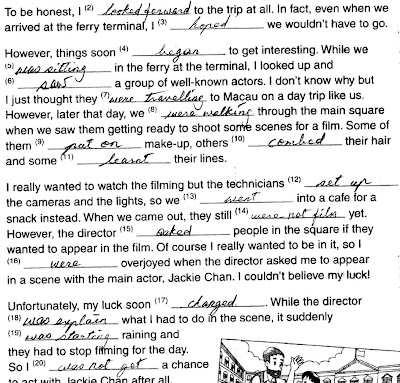 To be honest, I (2) looked forward to the trip at all. In fact, even when we
arrived at the ferry terminal, I (3) hoped we wouldn't have to go.
However, things soon (4) began to get interesting. While we
(5) was sitting in the ferry at the terminal, I looked up and
(6) saw a group of well-known actors. I don't know why but
I just thought they (7) were travelling to Macau on a day trip like us.
However, later that day, we (8) were walking through the main square
when we saw them getting ready to shoot some scenes for a film. Some of
them (9) put on make-up, others (10) combed their hair
and some (11) learnt their lines.
I really wanted to watch the filming but the technicians (12) set up
the cameras and the lights, so we (13) went into a cafe for a
snack instead. When we came out, they still (14) were not film yet.
However, the director (15) asked people in the square if they
wanted to appear in the film. Of course I really wanted to be in it, so I
(16) were overjoyed when the director asked me to appear
in a scene with the main actor, Jackie Chan. I couldn't believe my luck!
Unfortunately, my luck soon (17) changed. While the director
(18) was explain what I had to do in the scene, it suddenly
(19) was starting raining and
they had to stop filming for the day.
So I (20) was not get a chance
to act with Jackie Chan after all.